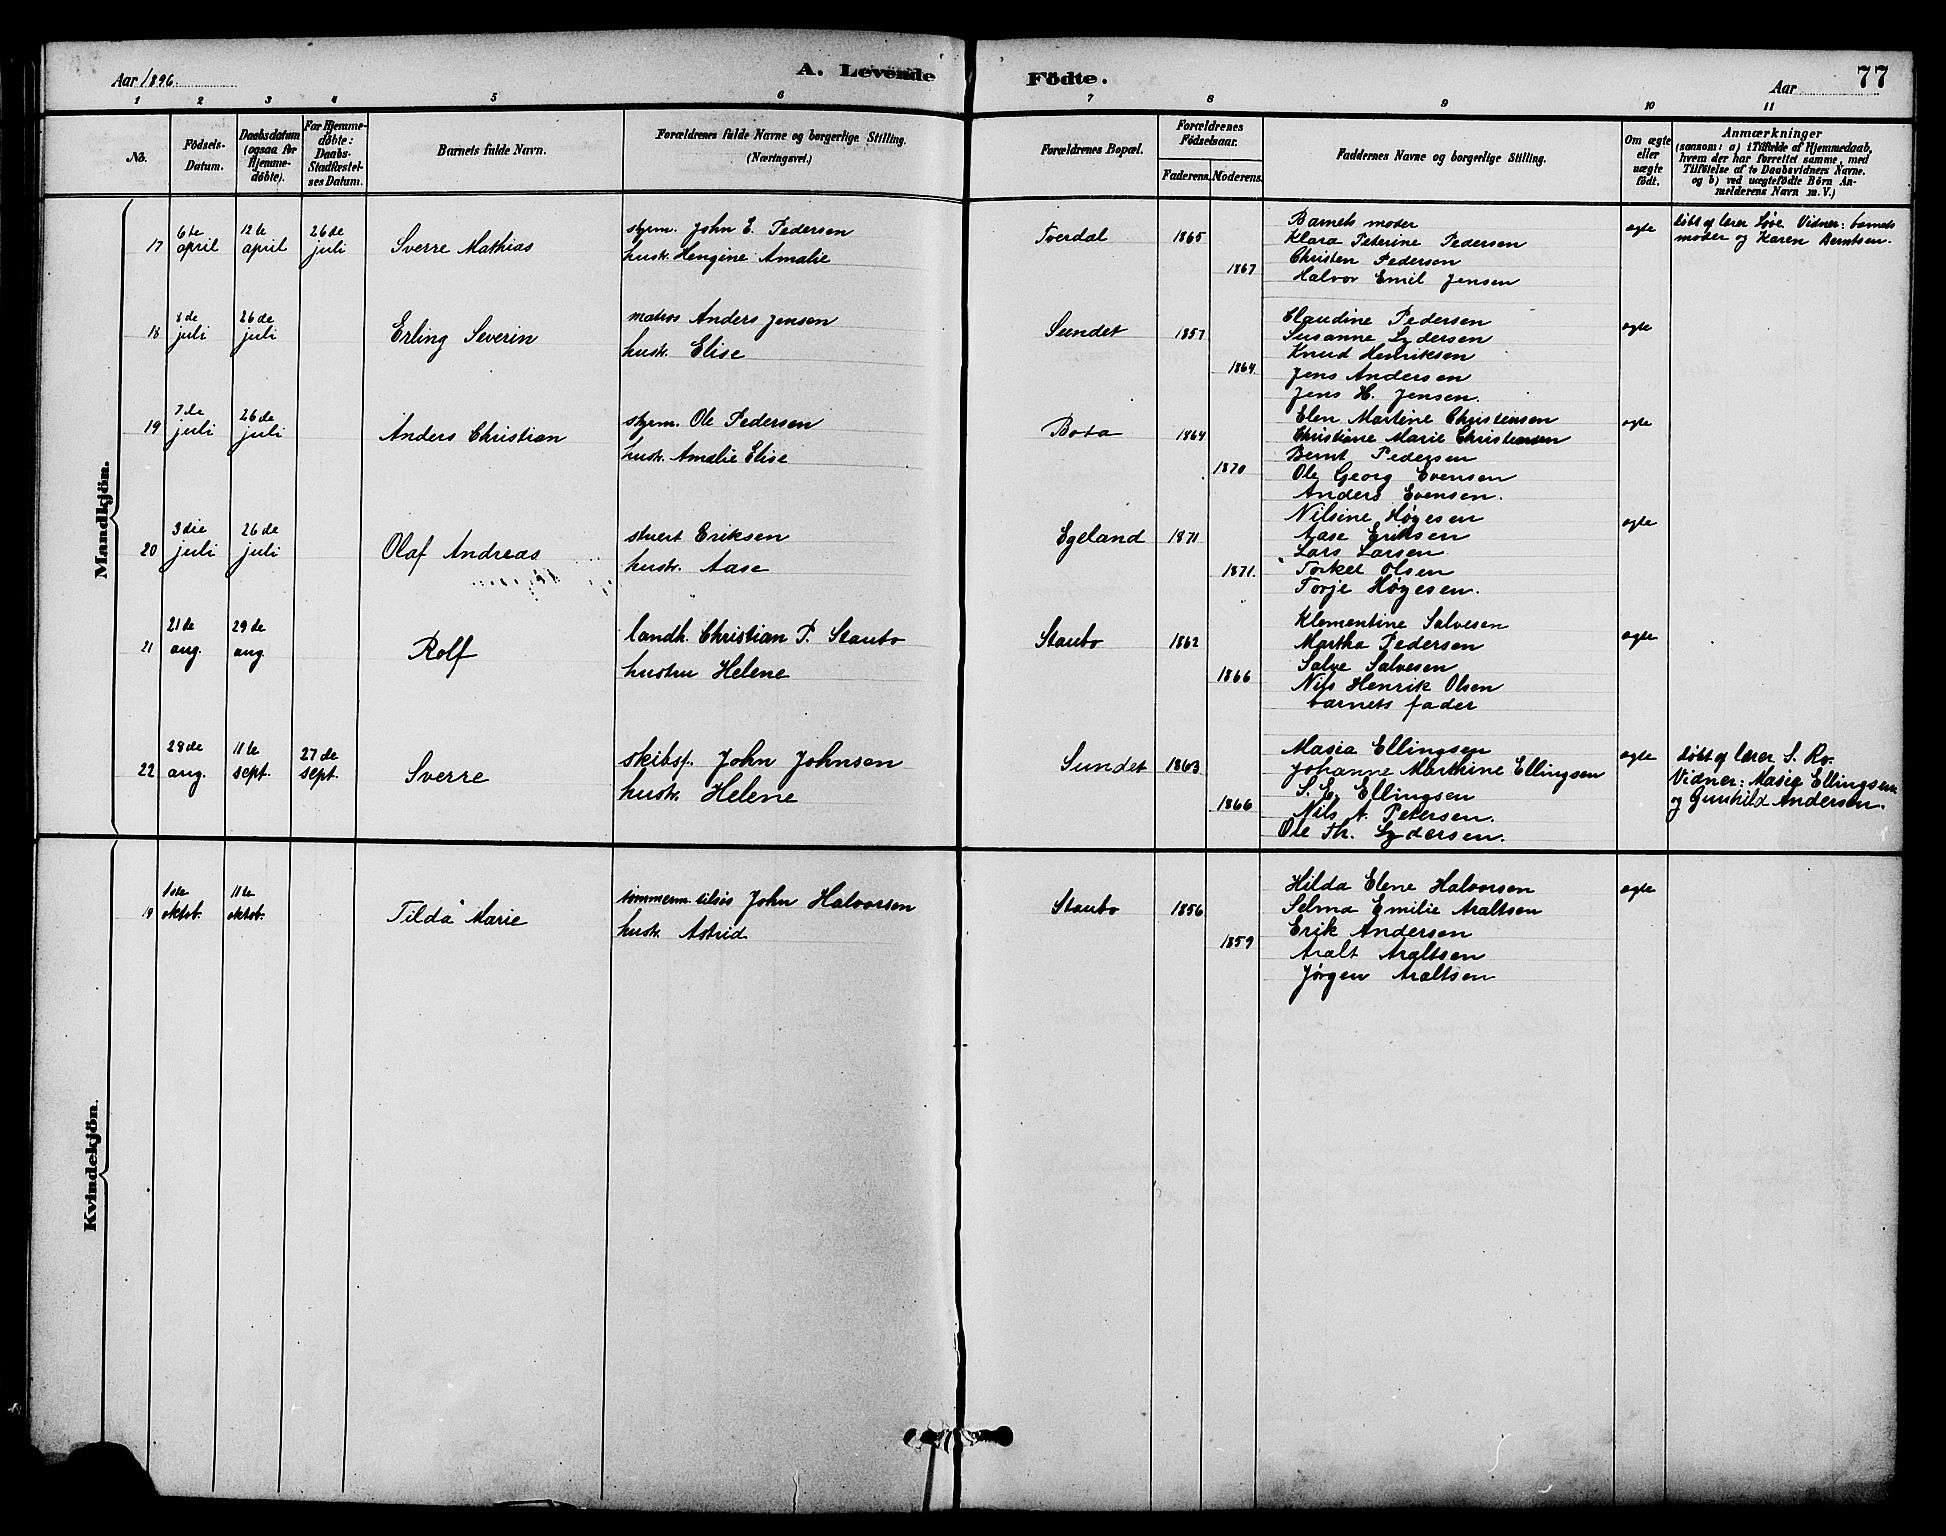 Aar 1896. A. Levende Födte. Aar 77
1 2 3 4 5 6 7 8 9 10 11
No. Födsels-Datum. Daabsdatum (ogsaa for Hjemme-döbte). For Hjemme-döbte: Daabs-Stadfæstel-ses Datum. Barnets fulde Navn. Forældrenes fulde Navne og borgerlige Stilling. (Næringsvei.) Forældrenes Bopæl. Forældrenes Födselsaar. Faderens. Moderens. Faddernes Navne og borgerlige Stilling. Om ægte eller uægte födt. Anmærkninger (saasom: a) i Tilfælde af Hjemmedaab, hvem der har forrettet samme, med Tilföielse af to Daabsvidners Navne. og b) ved uægtefödte Börn An-melderens Navn m. V.)
Mandkjön.
17 6te april 12te april 26de juli Sverre Mathias styrm. John E. Pedersen Tverdal 1865 Barnets moder ægte döbt af lærer Løve. Vidner: barnets
hustr. Hengine Amalie 1867 Klara Peterine Pedersen moder og Karen Berntsen.
Christen Pedersen
Halvor Emil Jensen
18 juli 26de juli Erling Severin matros Anders Jensen Sundet 1857 Claudine Pedersen ægte
hustr. Elise 1864 Susanne Lydersen
Knud Henriksen
Jens Andersen
Jens H. Jensen.
19 7de juli 26de juli Anders Christian styrm. Ole Pedersen Bota 1864 Elen Martine Christensen ægte
hustr. Amalie Elise 1870 Christiane Marie Christensen
Bernt Pedersen
Ole Georg Evensen
Anders Evensen.
20 3die juli 26de juli Olaf Andreas stuert Eriksen Egeland 1871 Nilsine Høgesen ægte
hustr. Aase 1871. Aase Eriksen
Lars Larsen
Torkel Olsen
Torje Høgesen.
21 21de aug. 29de aug. Rolf landh. Christian P. Staubo Staubo 1862 Klementine Salvesen ægte
hustru Helene 1866 Martha Pedersen
Salve Salvesen
Nils Henrik Olsen
barnets fader
22 28de aug. 11te sept. 27de sept. Sverre skibsf. John Johnsen Sundet 1863 Masia Ellingsen ægte döbt af lærer S. Ro.
hustr. Helene 1866 Johanne Marthine Ellingsen Vidner: Masia Ellingsen
S. E. Ellingsen og Gunhild Andersen.
Nils A. Petersen.
Ole Th. Lydersen.
Kvindekjön.
19 1ste oktob. 11te oktob. Tilda Marie tømmerm. tilsös John Halvorsen Staubo 1856 Hilda Elene Halvorsen ægte
hustr. Astrid 1859 Selma Emilie Araltsen
Erik Andersen
Aralt Araltsen
Jørgen Araltsen